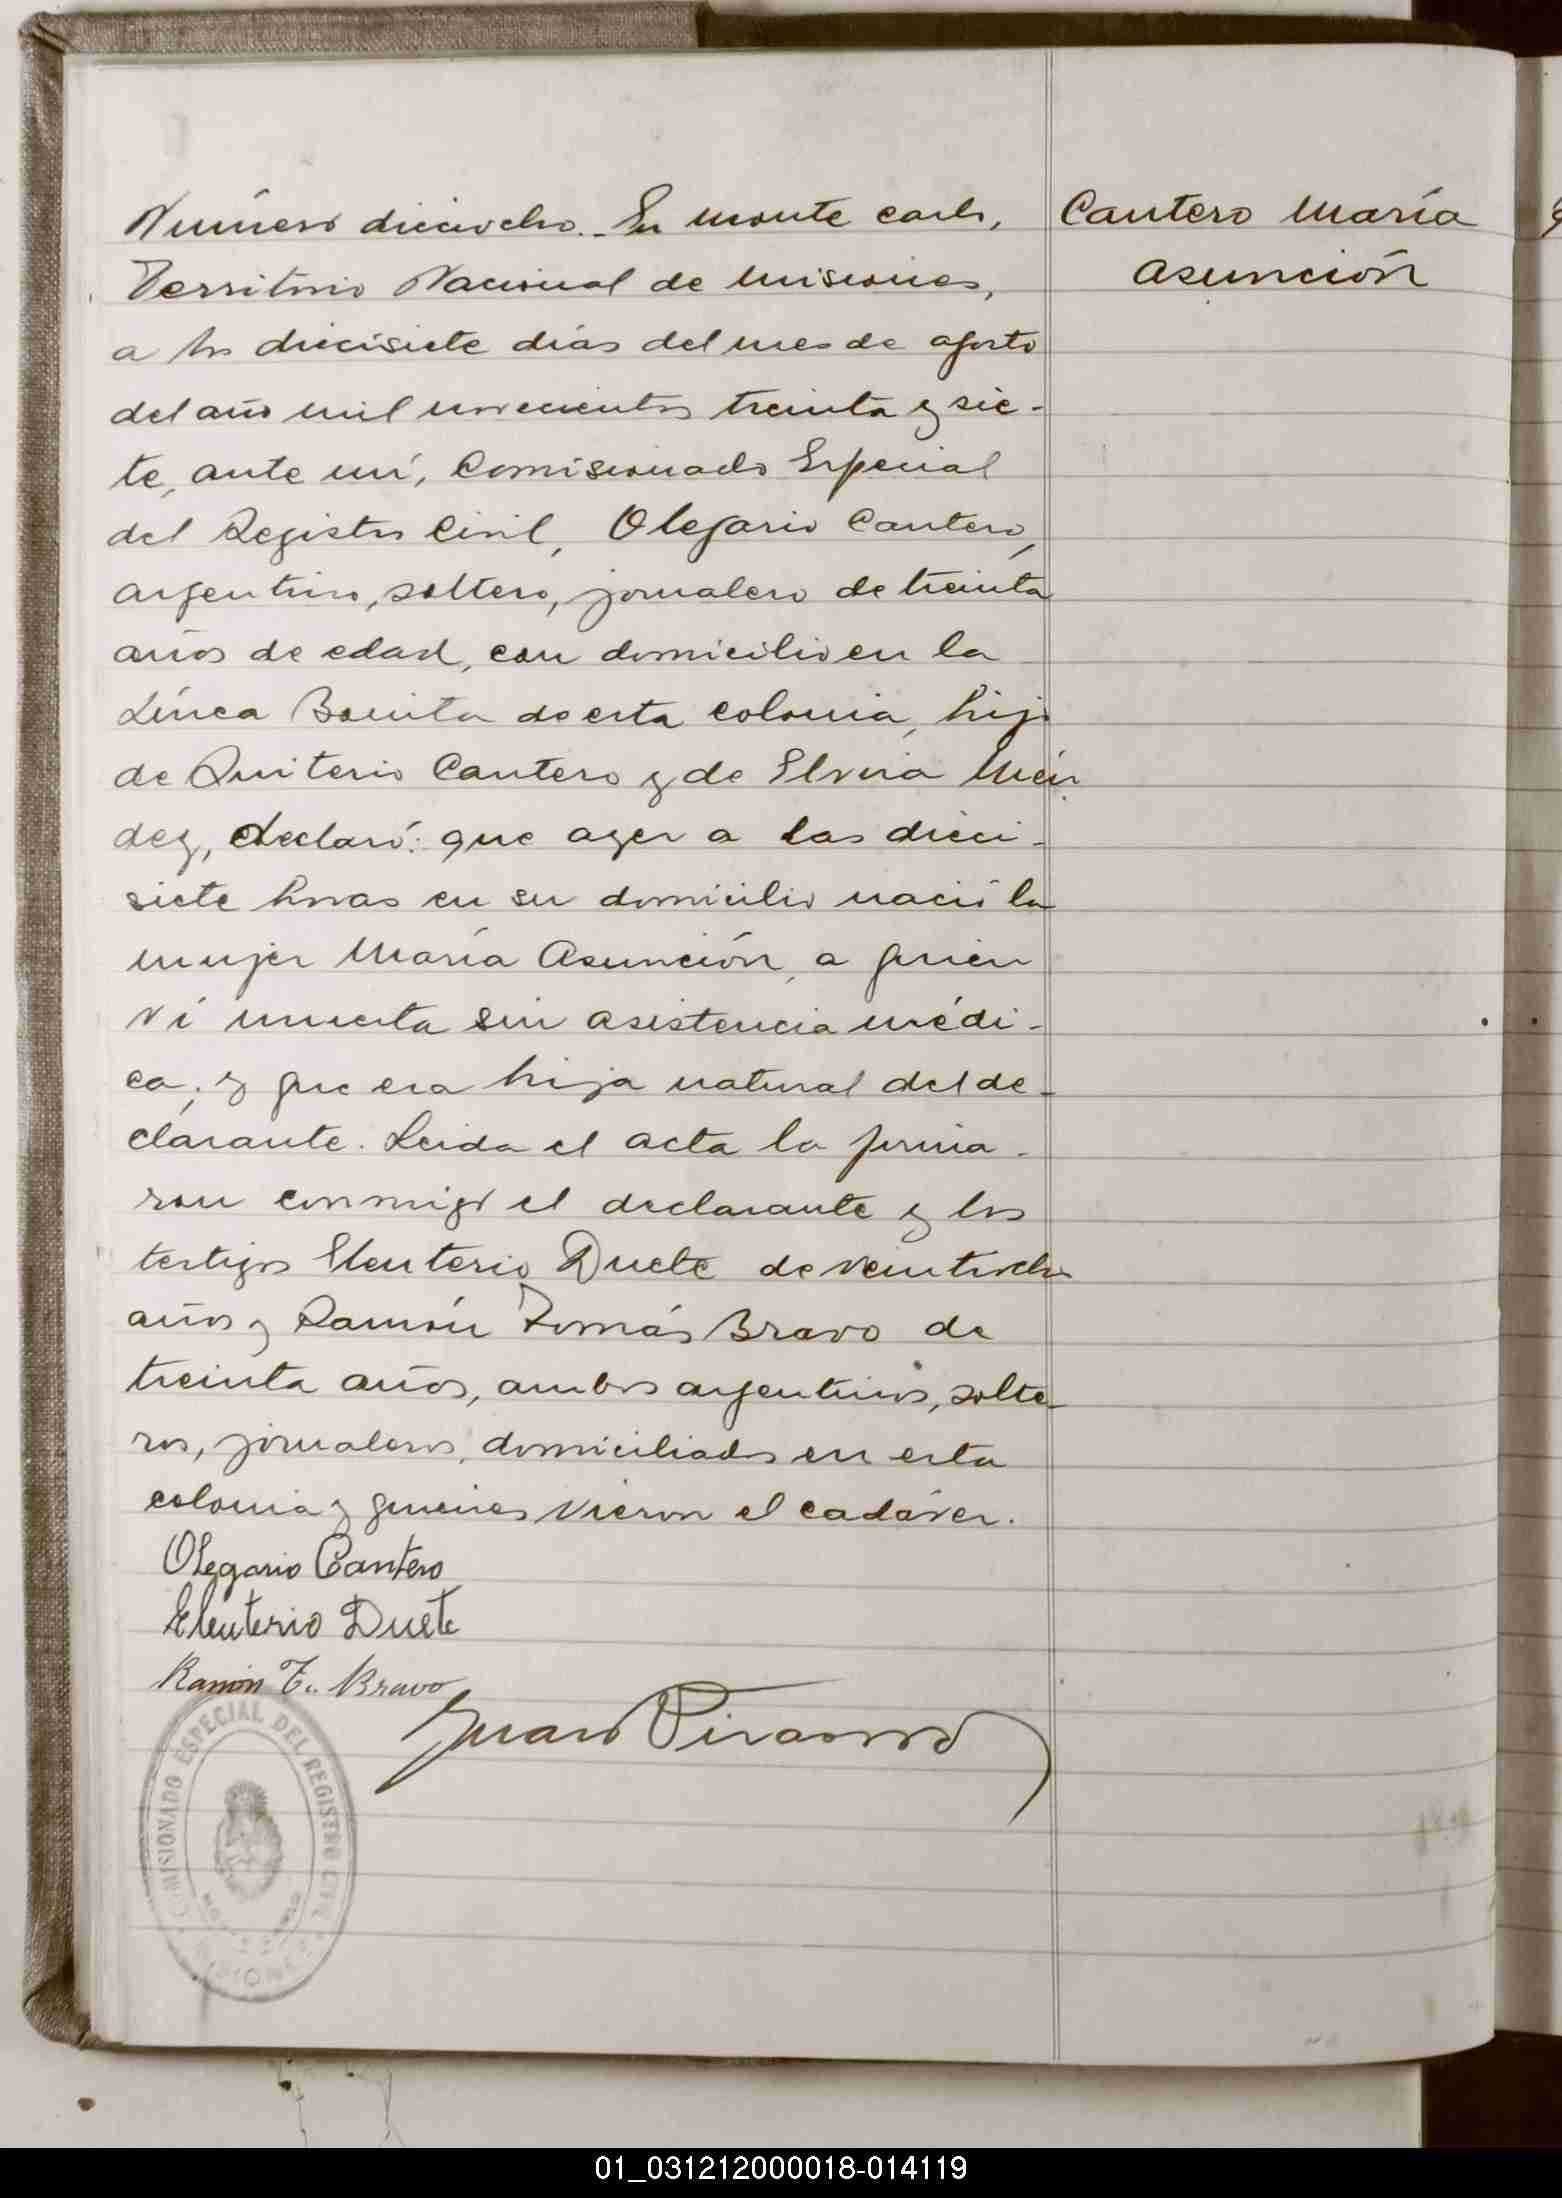 Número dieciocho.- En Monte Carlo,
Territorio Nacional de Misiones,
a los diecisiete días del mes de agosto
del año mil novecientos treinta y sie-
te, ante mí, Comisionado Especial
del Registro Civil, Olegario Cantero,
argentino, soltero, jornalero de treinta
años de edad, con domicilio en la
Línea Bonita de esta colonia, hijo
de Quiterio Cantero y de Elvira Mén
dez, declaró: que ayer a las dieci-
siete horas en su domicilio nació la
mujer María Asunción, a quien
ví muerta sin asistencia médi-
ca; y que era hija natural del de-
clarante. Leida el acta la firma-
ron conmigo el declarante y los
testigos Eleuterio Duete de veintiocho
años y Ramón Tomás Bravo de
treinta años, ambos argentinos, solte-
ros, jornaleros, domiciliados en esta
colonia y quienes vieron el cadáver.
Olegario Cantero
Eleuterio Duete
Ramón T. Bravo
Cantero María
Asunción
COMISIONADO ESPECIAL DEL REGISTRO CIVIL
MISIONES
01_031212000018-014119